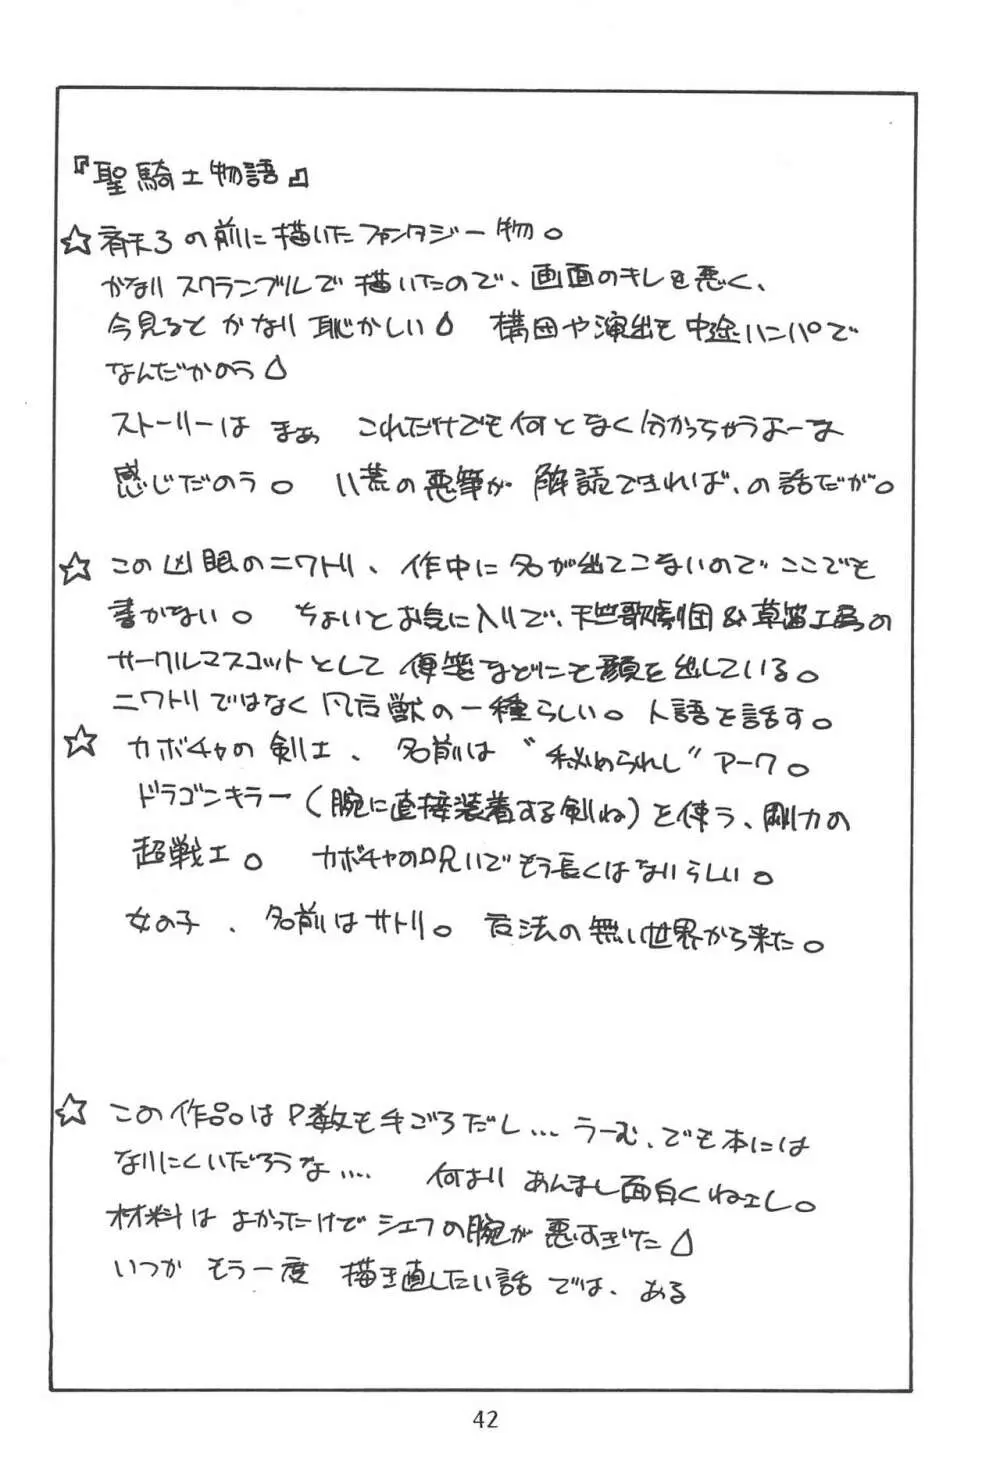 『聖騎士物語』
☆斉天3の前に描いたファンタジー物。
かなりスクランブルで描いたので、画面のキレも悪く、
今見るとかなり恥かしい 構図や演出も中途ハンパで
なんだかのう
ストーリーは まぁ これだけでも何となく分かっちゃうよーな
感じだのう。 八荒の悪筆が解読できれば、の話だが。
☆この凶眼のニワトリ、作中に名が出てこないのでここでも
書かない。 ちょいとお気に入りで、天竺歌劇団&草笛工房の
サークルマスコットとして便箋などにも顔を出している。
ニワトリではなく 獣の一種らしい。人語を話す。
☆ カボチャの剣士、名前は〝秘められし〟アーク。
ドラゴンキラー(腕に直接装着する剣ね)を使う、剛力の
超戦士。 カボチャの呪いでもう長くはないらしい。
女の子、名前はサトリ。 法の無い世界から来た。
☆この作品はP数も手ごろだし… うーむ、でも本には
なりにくいだろうな…. 何よりあんまし面白くねェし。
材料はよかったけどシェフの腕が悪すぎた
いつか もう一度 描き直したい話 では、ある
42